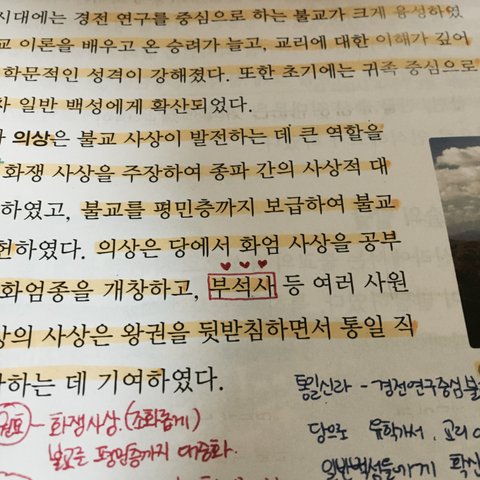 시대에는 경전 연구를 중심으로 하는 불교가 크게 융성하였
교 이론을 배우고 온 승려가 늘고, 교리에 대한 이해가 깊어
학문적인 성격이 강해졌다. 또한 초기에는 귀족 중심으로
차 일반 백성에게 확산되었다.
의상은 불교 사상이 발전하는 데 큰 역할을
화쟁 사상을 주장하여 종파 간의 사상적 대
하였고, 불교를 평민층까지 보급하여 불교
헌하였다. 의상은 당에서 화엄 사상을 공부
화엄종을 개창하고, 부석사 등 여러 사원
상의 사상은 왕권을 뒷받침하면서 통일 직
하는 데 기여하였다.
통일신라 - 경전연구중심 불
원효 - 화쟁사상. (조화롭게)
당으로 유학가서, 교리
불교를 평민층까지 대중화.
일반백성들에게 확산